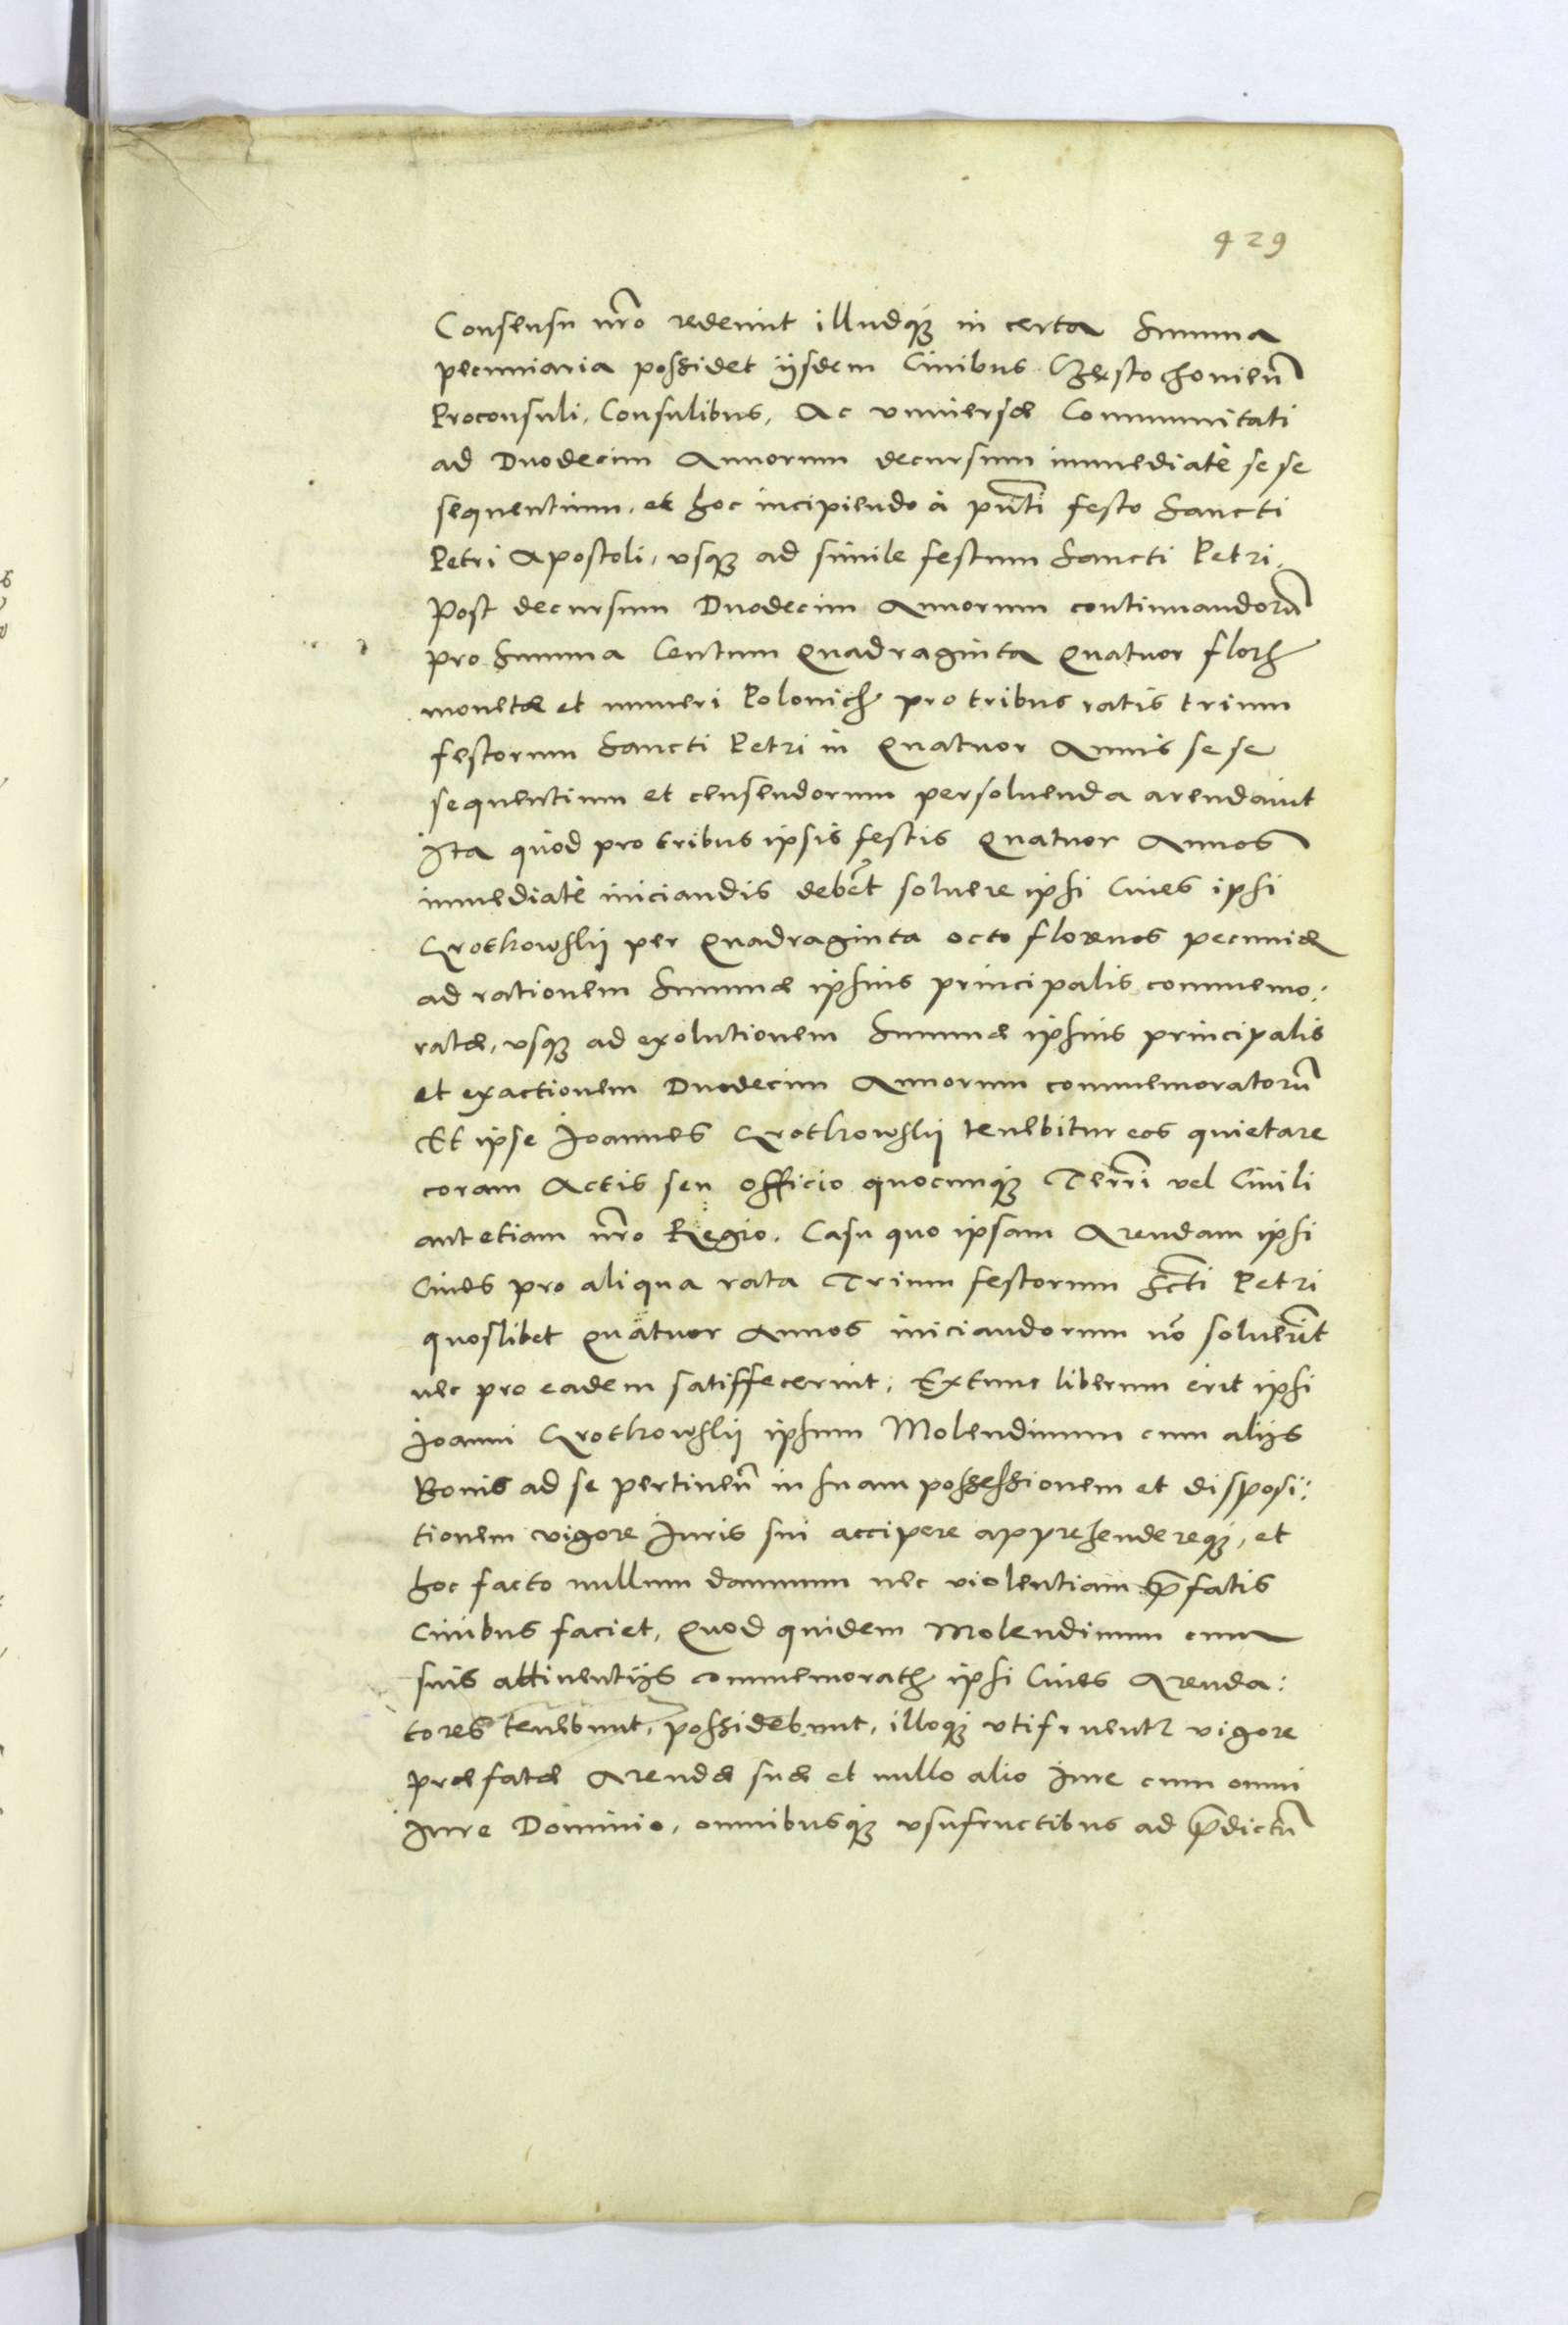 429
Consensu nr̃o redemit illudq̃ in certa Summa
pecuniaria possidet ijsdem Ciuibus Czestochouień
Proconsuli, Consulibus, Ac vniuersæ Communitati
ad Duodecim Annorum decursum immediatè sese
sequentium, et hoc incipiendo à pñti festo Sancti
Petri Apostoli, vsq̃ ad simile festum Sancti Petri,
Post decursum Duodecim Annorum continuandorũ
pro Summa Centum Quadraginta Quatuor florꝝ
monetæ et numeri Polonicꝝ pro tribus ratis trium
festorum Sancti Petri in Quatuor Annis sese
sequentium et censendorum persoluenda arendauit
Ita quòd pro tribus ipsis festis Quatuor Annos
immediatè iniciandis debẽt soluere ipsi Ciues ipsi
Grotkowskij per Quadraginta octo florenos pecuniæ
ad rationem Summæ ipsius principalis commemo:
ratæ, vsq̃ ad exolutionem Summæ ipsius principalis
et exactionem Duodecim Annorum commemoratorũ
Et ipse Joannes Grotkowskij tenebitur eos quietare
coram Actis seu officio quocunq̃ Terrī vel Ciuili
aut etiam nr̃o Regio. Casu quo ipsam Arendam ipsi
Ciues pro aliqua rata Trium festorum Scti Petri
quoslibet Quatuor Annos iniciandorum nõ soluerĩt
nec pro eadem satiffecerint, Extunc liberum erit ipsi
Joanni Grotkowskij ipsum Molendinum cum alijs
Bonis ad se pertineñ in suam possessionem et disposi:
tionem vigore Juris sui accipere apprehendereq̃, et
hoc facto nullum damnum nec violentiam p̃fatis
Ciuibus faciet, Quod quidem Molendinum cum
suis attinentijs commemoratꝝ ipsi Ciues Arenda:
tores tenebunt, possidebunt, illoq̃ vtifruentr vigore
præfatæ Arendæ suæ et nullo alio Jure cum omni
Jure Dominio, omnibusq̃ vsufructibus ad p̃dictũ